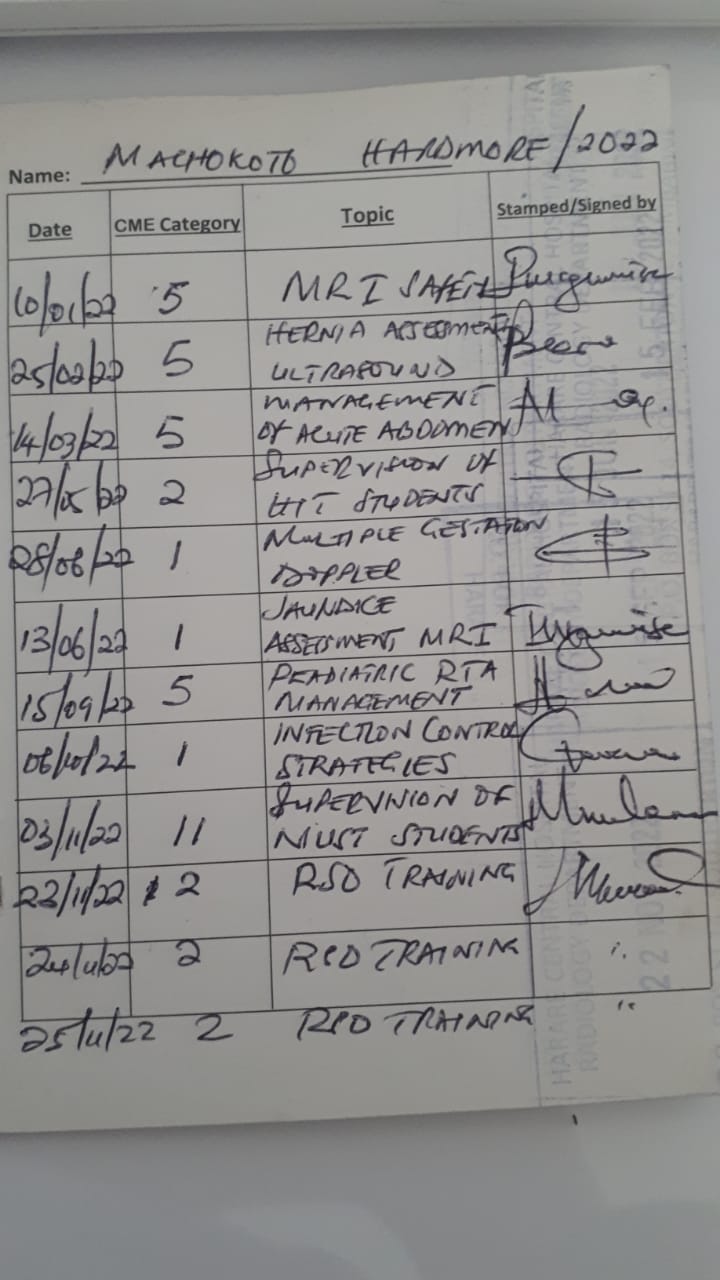 Name: MACHOKOTO HARDMORE/2022
Date CME Category Topic Stamped/Signed by
10/01/22 5 MRI SAFETY
25/02/22 5 HERNIA ASSESSMENT
ULTRASOUND
14/03/22 5 MANAGEMENT
OF ACUTE ABDOMEN
27/05/22 2 SUPERVISION OF
HIT STUDENTS
28/06/22 1 MULTIPLE GESTATION
DOPPLER
13/06/22 1 JAUNDICE
ASSESSMENT, MRI
15/09/22 5 PEADIATRIC RTA
MANAGEMENT
06/10/22 1 INFECTION CONTROL
STRATEGIES
03/11/22 11 SUPERVNION OF
NUST STUDENTS
23/11/22 2 RSO TRAINING
24/11/22 2 RSO TRAINING ''
25/11/22 2 RSO TRAINING ''